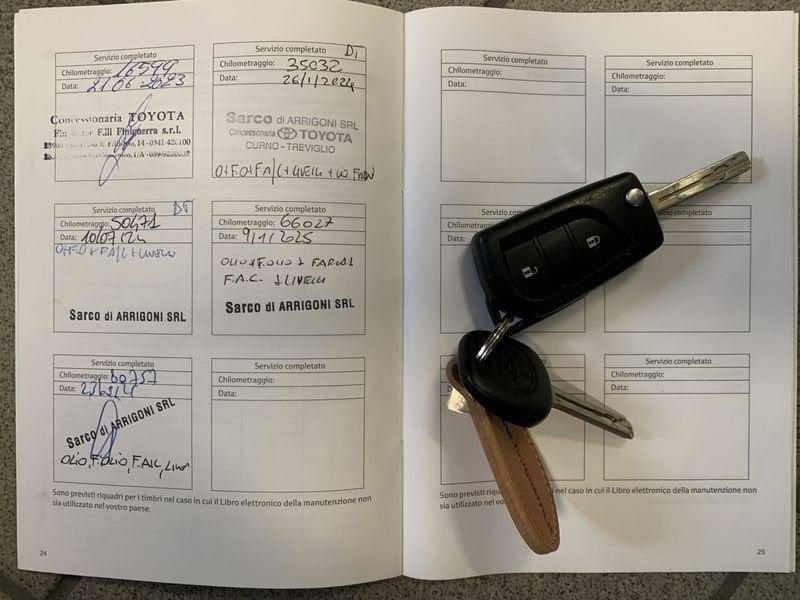 Servizio completato
Chilometraggio: 16599
Data: 21 06 2023
Concessionaria TOYOTA
F.lli Finiguerra s.r.l.
Servizio completato
Chilometraggio: 35032
Data: 26/1/2024
Sarco di ARRIGONI SRL
Concessionaria TOYOTA
CURNO - TREVIGLIO
Servizio completato
Chilometraggio: 50471
Data: 10/07/24
O+F.O+F.A/C+LIVELLI
Sarco di ARRIGONI SRL
Servizio completato
Chilometraggio: 66027
Data: 9/1/2025
OLIO + F.OLIO +
F.A.C. + LIVELLI
Sarco di ARRIGONI SRL
Servizio completato
Chilometraggio:
Data:
Sarco di ARRIGONI SRL
OLIO, F.OLIO, F.A/C,
Servizio completato
Chilometraggio:
Data:
Sono previsti riquadri per i timbri nel caso in cui il Libro elettronico della manutenzione non
sia utilizzato nel vostro paese.
24
Servizio completato
Chilometraggio:
Data:
Servizio completato
Chilometraggio:
Data:
Servizio completato
Servizio completato
Servizio completato
Chilometraggio:
Data:
Sono previsti nel caso in cui il Libro elettronico della manutenzione non
sia utilizzato nel
25